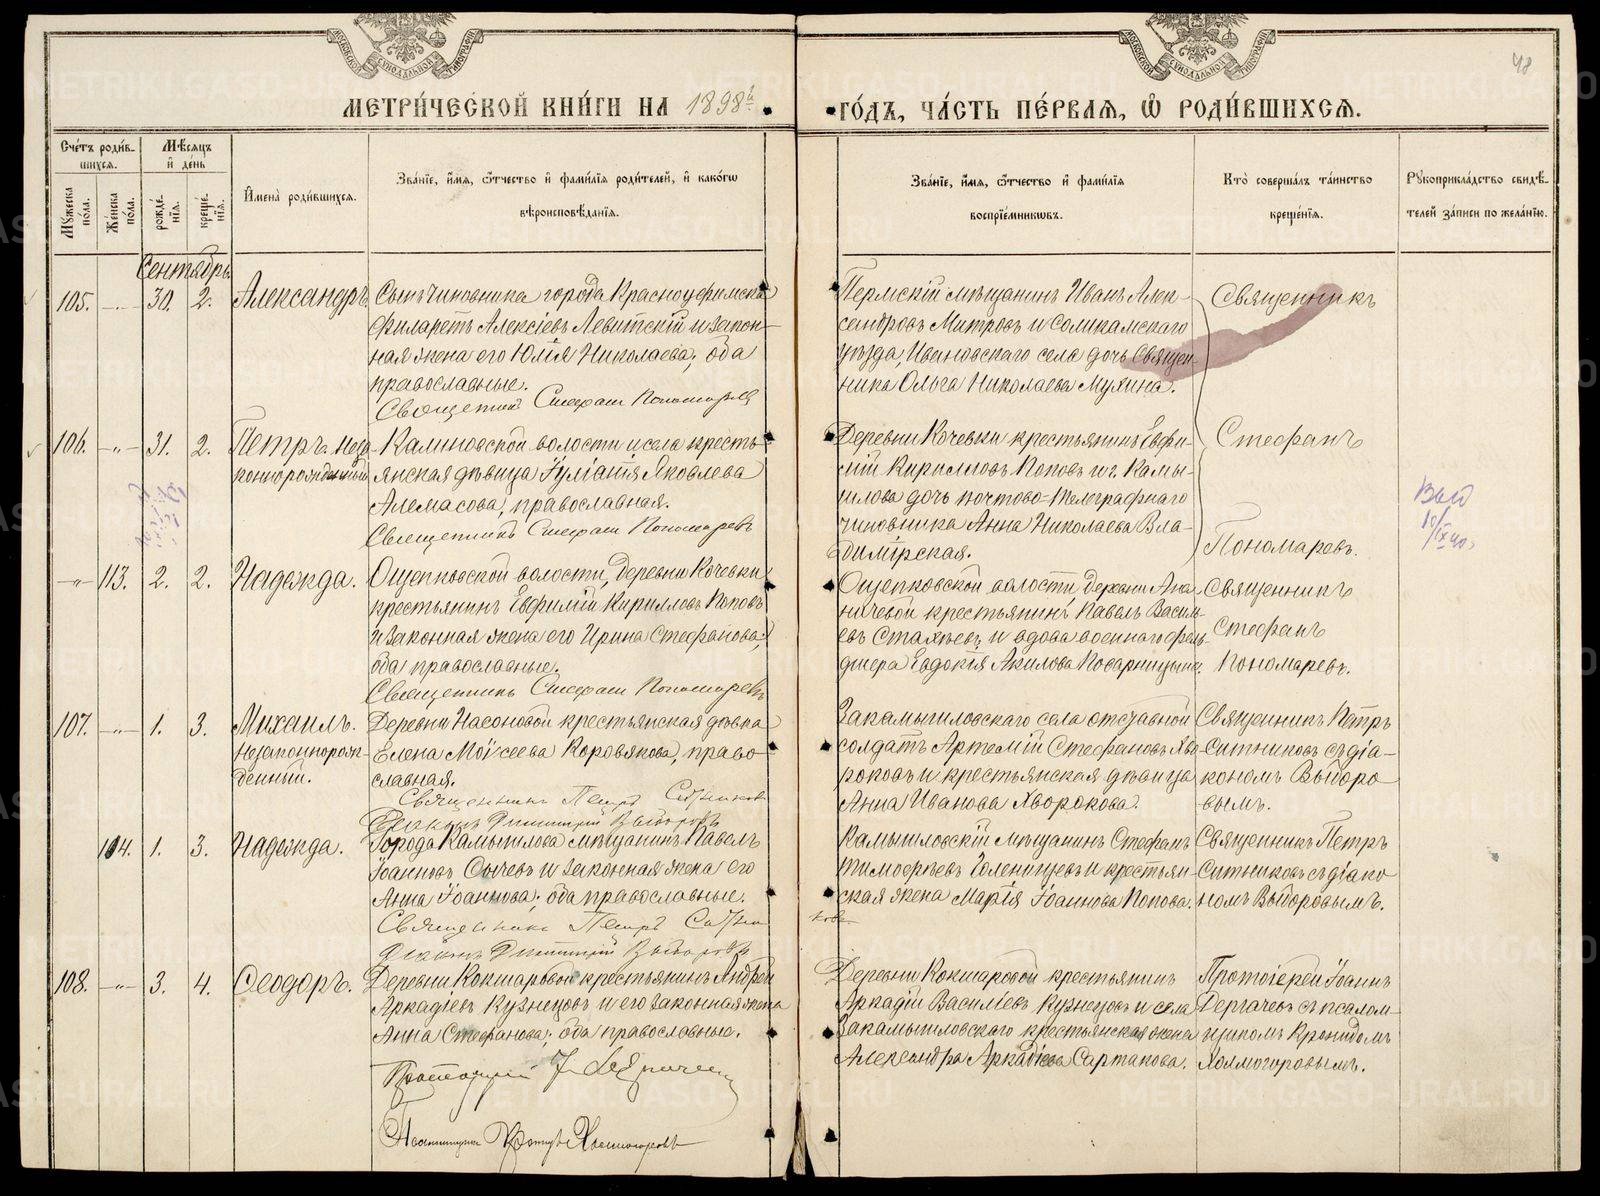 МОСКОВСКОЙ СѴНОДАЛЬНОЙ ТИПОГРАФІИ
МОСКОВСКОЙ СѴНОДАЛЬНОЙ ТИПОГРАФІИ
48
МЕТРИ́ЧЕСКОЙ КНИ́ГИ НА 1898й ГО́ДЪ, ЧА́СТЬ ПЕ́РВАЯ, Ѽ РОДИ́ВШИХСЯ.
Сче́тъ роди́в-
шихся.
Мꙋжеска по́ла.
Же́нска по́ла.
Мѣ́сяцъ
и҆ де́нь
рожде́нїя.
креще́нїя.
И҆мена̀ роди́вшихся.
Зва́нїе, и҆́мя, ѻ҆́тчество и҆ фами́лїя роди́телей, и҆ како́гѡ
вѣроисповѣ́данїя.
Зва́нїе, и҆́мя, ѻ҆́тчество и҆ фами́лїя
воспрїе́мникѡвъ.
Кто̀ соверша́лъ та́инство
креще́нїя.
Рꙋкоприкла́дство свидѣ́-
телей за́писи по жела́нїю.
Сентябрь
105. -„- 30. 2. Александръ.
Сынъ чиновника города Красноуфимска
Филаретъ Алексіевъ Левитскій и закон-
ная жена его Юлія Николаева; оба
православные.
Священникъ Стефанъ Пономаревъ
Пермскій мѣщанинъ Иванъ Алек-
сандровъ Митровъ и Соликамскаго
уѣзда, Ивановскаго села дочь Священ-
ника Ольга Николаева Мухина.
Священникъ
Стефанъ
Пономаревъ.
106. -„- 31. 2. Петръ. Неза-
коннорожденный
Калиновской волости и села кресть-
янская дѣвица Іуліанія Яковлева
Алемасова, православная.
Священникъ Стефанъ Пономаревъ
Деревни Кочевки крестьянинъ Евфи-
мій Кирилловъ Поповъ и г. Камы-
шлова дочь почтово-телеграфнаго
чиновника Анна Николаева Вла-
димірская.
Выд
10/IX 40
-„- 113. 2. 2. Надежда.
Ощепковской волости, деревни Кочевки
крестьянинъ Евфимій Кирилловъ Поповъ
и законная жена его Ирина Стефанова;
оба православные.
Священникъ Стефанъ Пономаревъ
Ощепковской волости, деревни Ана-
ничевой крестьянинъ Павелъ Василь-
евъ Стахѣевъ и вдова военнаго фельд-
шера Евдокія Акилова
Священникъ
Стефанъ
Пономаревъ.
107. -„- 1. 3. Михаилъ.
Незаконнорож-
денный.
Деревни Насоновой крестьянская дѣвка
Елена Моѵсеева Коровякова, право-
славная.
Священникъ Петръ Ситниковъ
Діаконъ Димитрій Выборовъ
Закамышловскаго села отставной
солдатъ Артемій Стефановъ Хво-
роковъ и крестьянская дѣвица
Анна Иванова Хворокова.
Священникъ Петръ
Ситниковъ съ діа-
кономъ Выборо
вымъ.
114. 1. 3. Надежда.
Города Камышлова мѣщанинъ Павелъ
Іоанновъ Сычевъ и законная жена его
Анна Іоаннова; оба православные.
Священникъ Петръ Ситни
ковъ
Діаконъ Димитрій Выборовъ
Камышловскій мѣщанинъ Стефанъ
Тимофѣевъ Голенищевъ и крестьян-
ская жена Марія Іоаннова Попова.
Священникъ Петръ
Ситниковъ съ діако
номъ Выборовымъ.
108. -„- 3. 4. Ѳеодоръ.
Деревни Кокшаровой крестьянинъ Андрей
Аркадіевъ Кузнецовъ и его законная жена
Анна Стефанова; оба православные.
Протоіерей І. Дергачевъ
Псаломщикъ Кронидъ Холмогоровъ
Деревни Кокшаровой крестьянинъ
Аркадій Василіевъ Кузнецовъ и села
Закамышловскаго крестьянская жена
Александра Аркадіева Сартакова.
Протоіерей Іоаннъ
Дергачевъ съ псалом-
щикомъ Кронидомъ
Холмогоровымъ.
METRIKI.GASO-URAL.RU